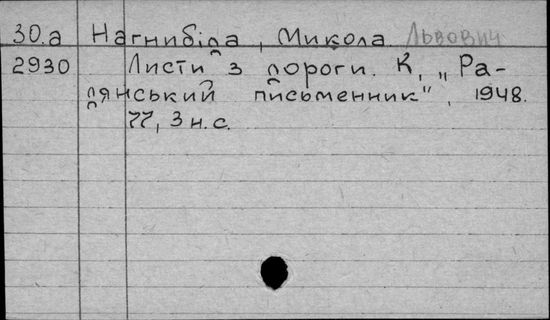 30.а Нагнибіда, Микола Львович
2930 Листи з дороги. К, „Ра-
дянський письменник", 1948.
77, 3 н.с.